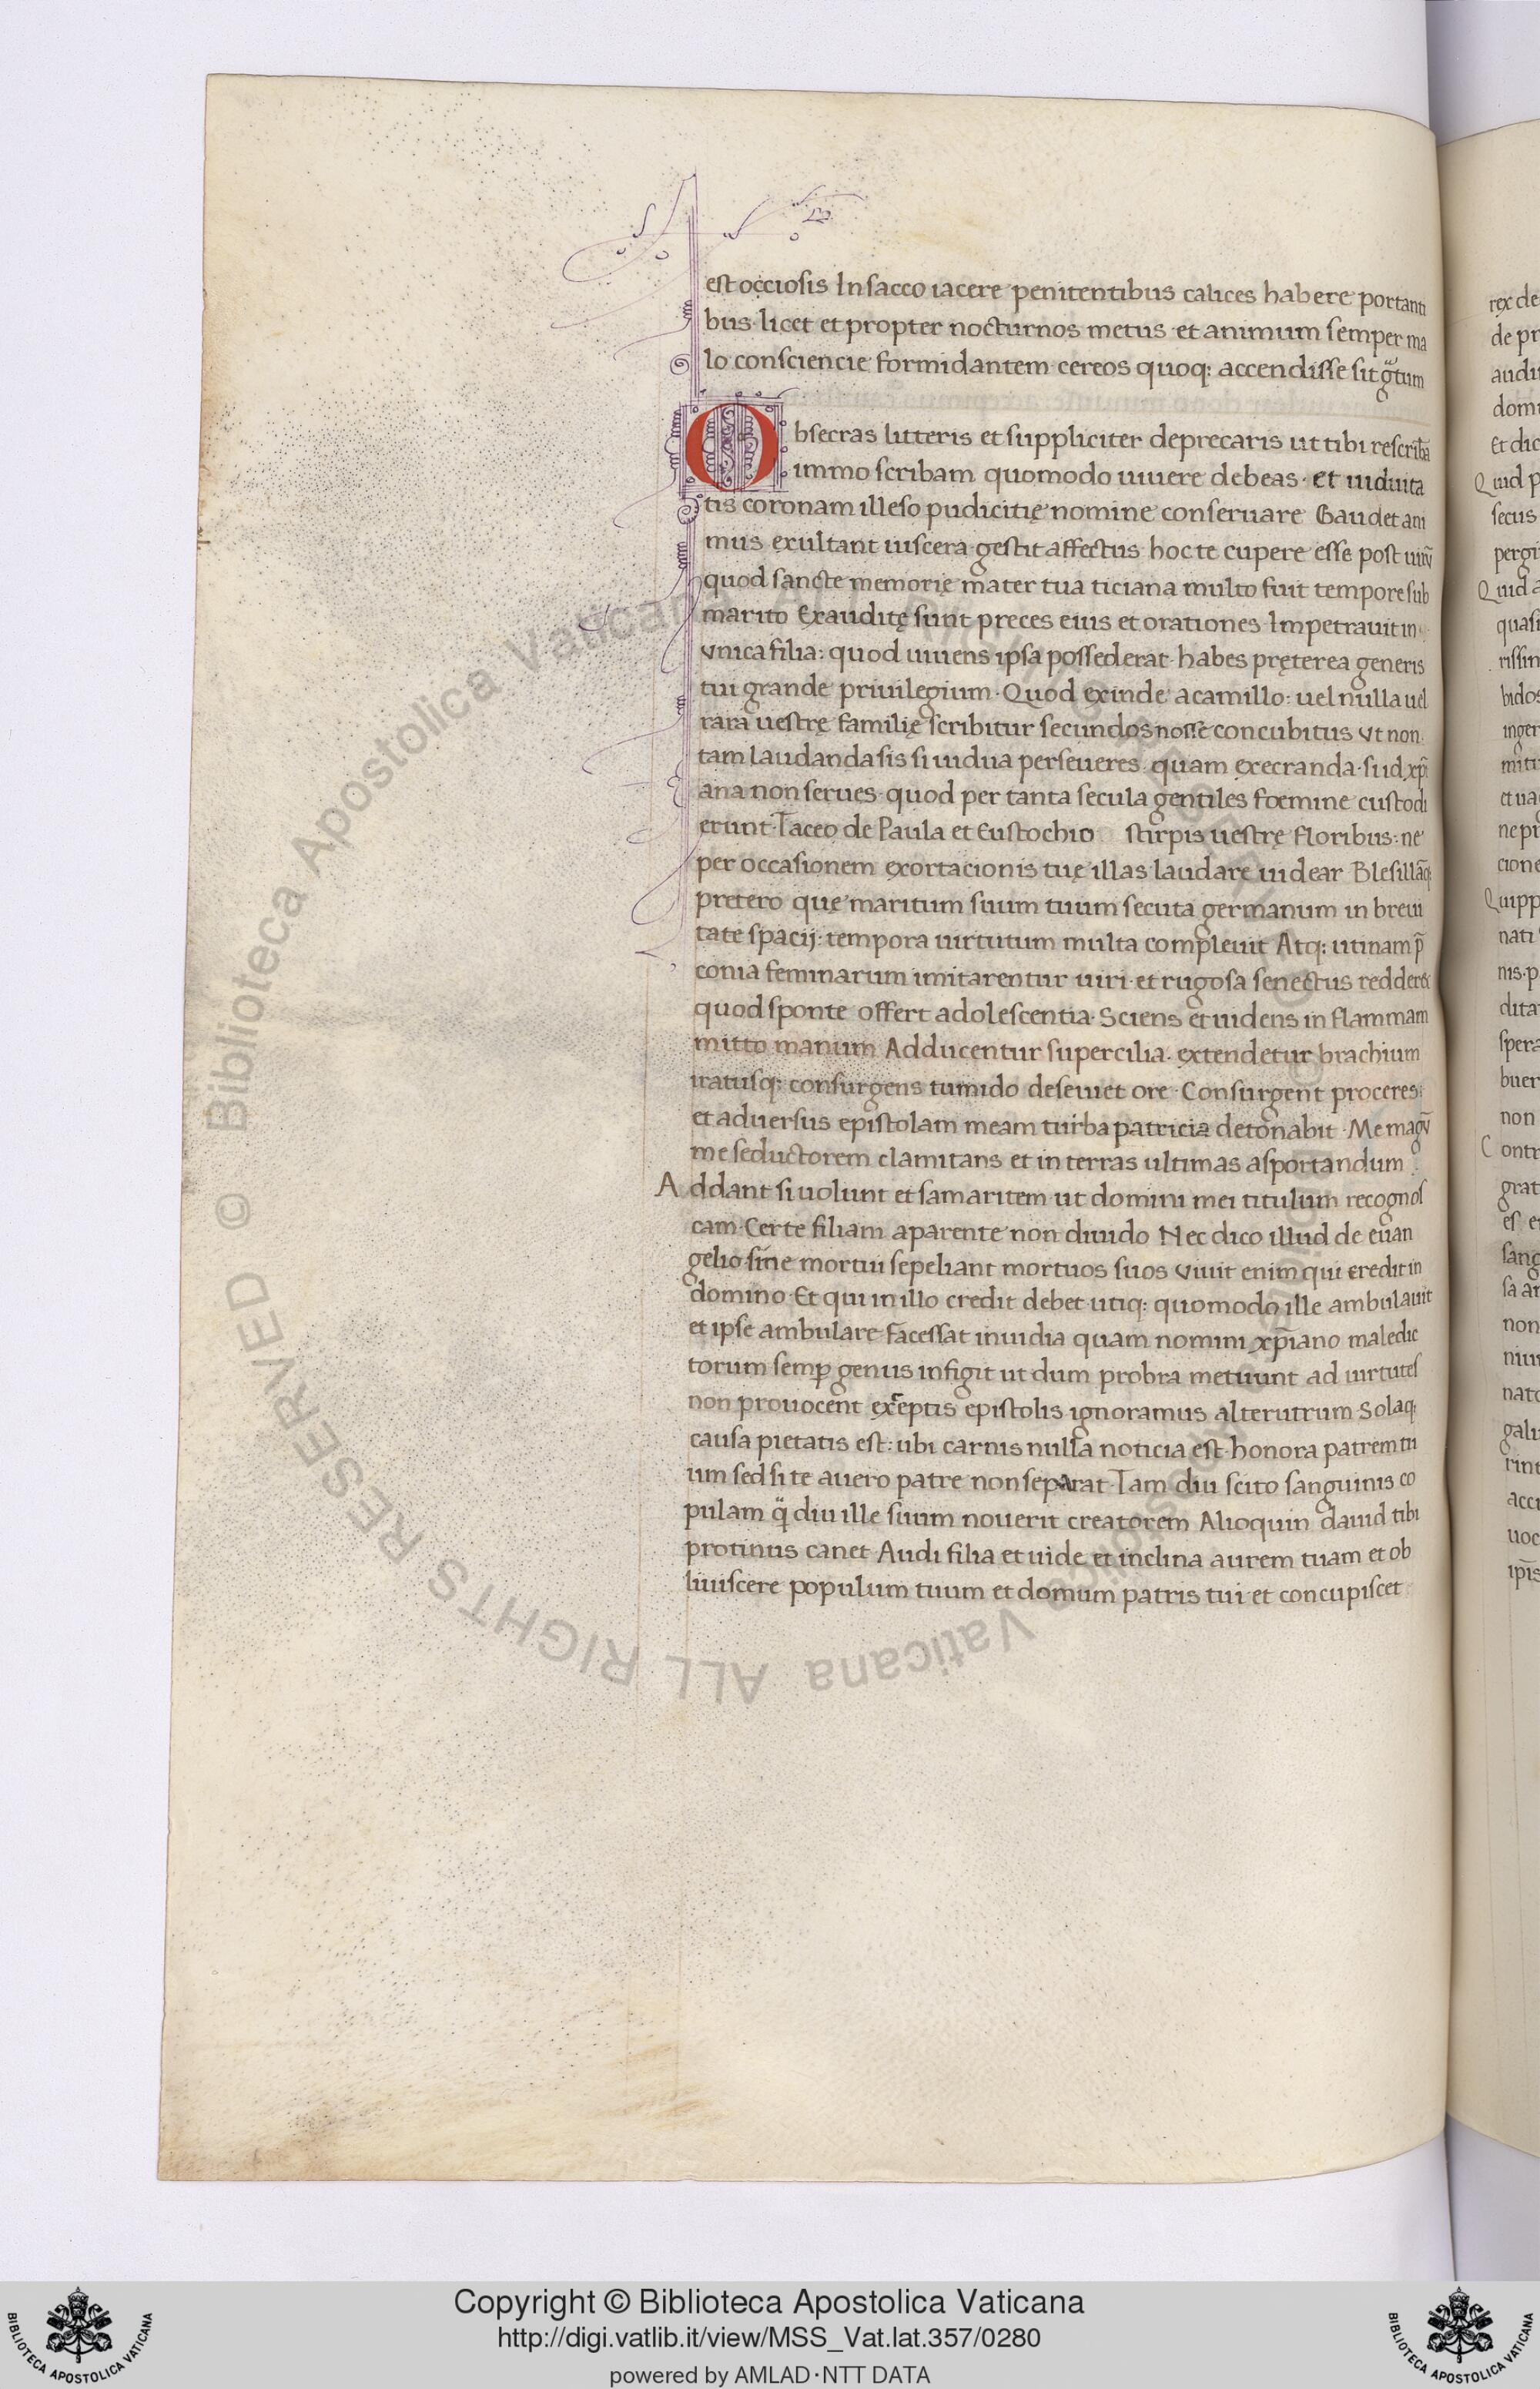 est occiosis In sacco iacere penitentibus calices habere portanti
bus· licet et propter nocturnos metus et animum semper ma
lo consciencie formidantem cereos quoq: accendisse sit gᵃtum
Obsecras litteris et suppliciter deprecaris ut tibi rescribā
immo scribam quomodo uiuere debeas· et uiduita
tis coronam illeso pudicitię nomine conseruare Gaudet ani
mus exultant uiscera gestit affectus hoc te cupere esse post uirū
quod sancte memorię mater tua ticiana multo fuit tempore sub
marito Exauditę sunt preces eius et orationes Impetrauit in
vnica filia: quod uiuens ipsa possederat· habes pręterea generis
tui grande priuilegium· Quod exinde a camillo: uel nulla uel
rara uestrę familię scribitur secundos nosse concubitus vt non
tam laudanda sis si uidua perseueres quam execranda· si id xp̄i
ana non serues· quod per tanta secula gentiles foemine custodi
erunt· Taceo de Paula et Eustochio stirpis uestrę floribus: ne
per occasionem exortacionis tuę illas laudare uidear Blesillāq:
pretero quę maritum suum tuum secuta germanum in breui
tate spacij: tempora uirtutum multa compleuit Atq: utinam p̄
conia feminarum imitarentur uiri· et rugosa senectus redderet
quod sponte offert adolescentia· Sciens et uidens in flammam
mitto manum Adducentur supercilia· extendetur brachium
iratusq: consurgens tumido deseuiet ore· Consurgent proceres:
et aduersus epistolam meam turba patricia detonabit· Me magū
me seductorem clamitans et in terras ultimas asportandum
Addant si uolunt et samaritem ut domini mei titulum recognos
cam· Certe filiam aparente non diuido Nec dico illud de euan
gelio· sine mortui sepeliant mortuos suos viuit enim qui credit in
domino· Et qui in illo credit debet utiq: quomodo ille ambulauit
et ipse ambulare facessat inuidia quam nomini xp̄iano maledic
torum semꝑ genus infigit ut dum probra metuunt ad uirtutes
non prouocent exceptis epistolis ignoramus alterutrum Solaq:
causa pietatis est: ubi carnis nulla noticia est· honora patrem tu
um sed si te auero patre non separat· Tam diu scito sanguinis co
pulam q̄ diu ille suum nouerit creatorem Alioquin dauid tibi
protinus canet Audi filia et uide et inclina aurem tuam et ob
liuiscere populum tuum et domum patris tui et concupiscet
© Biblioteca Apostolica Vaticana ALL RIGHTS RESERVED
Copyright © Biblioteca Apostolica Vaticana
http://digi.vatlib.it/view/MSS_Vat.lat.357/0280
powered by AMLAD·NTT DATA
BIBLIOTECA APOSTOLICA VATICANA
BIBLIOTECA APOSTOLICA VATICANA